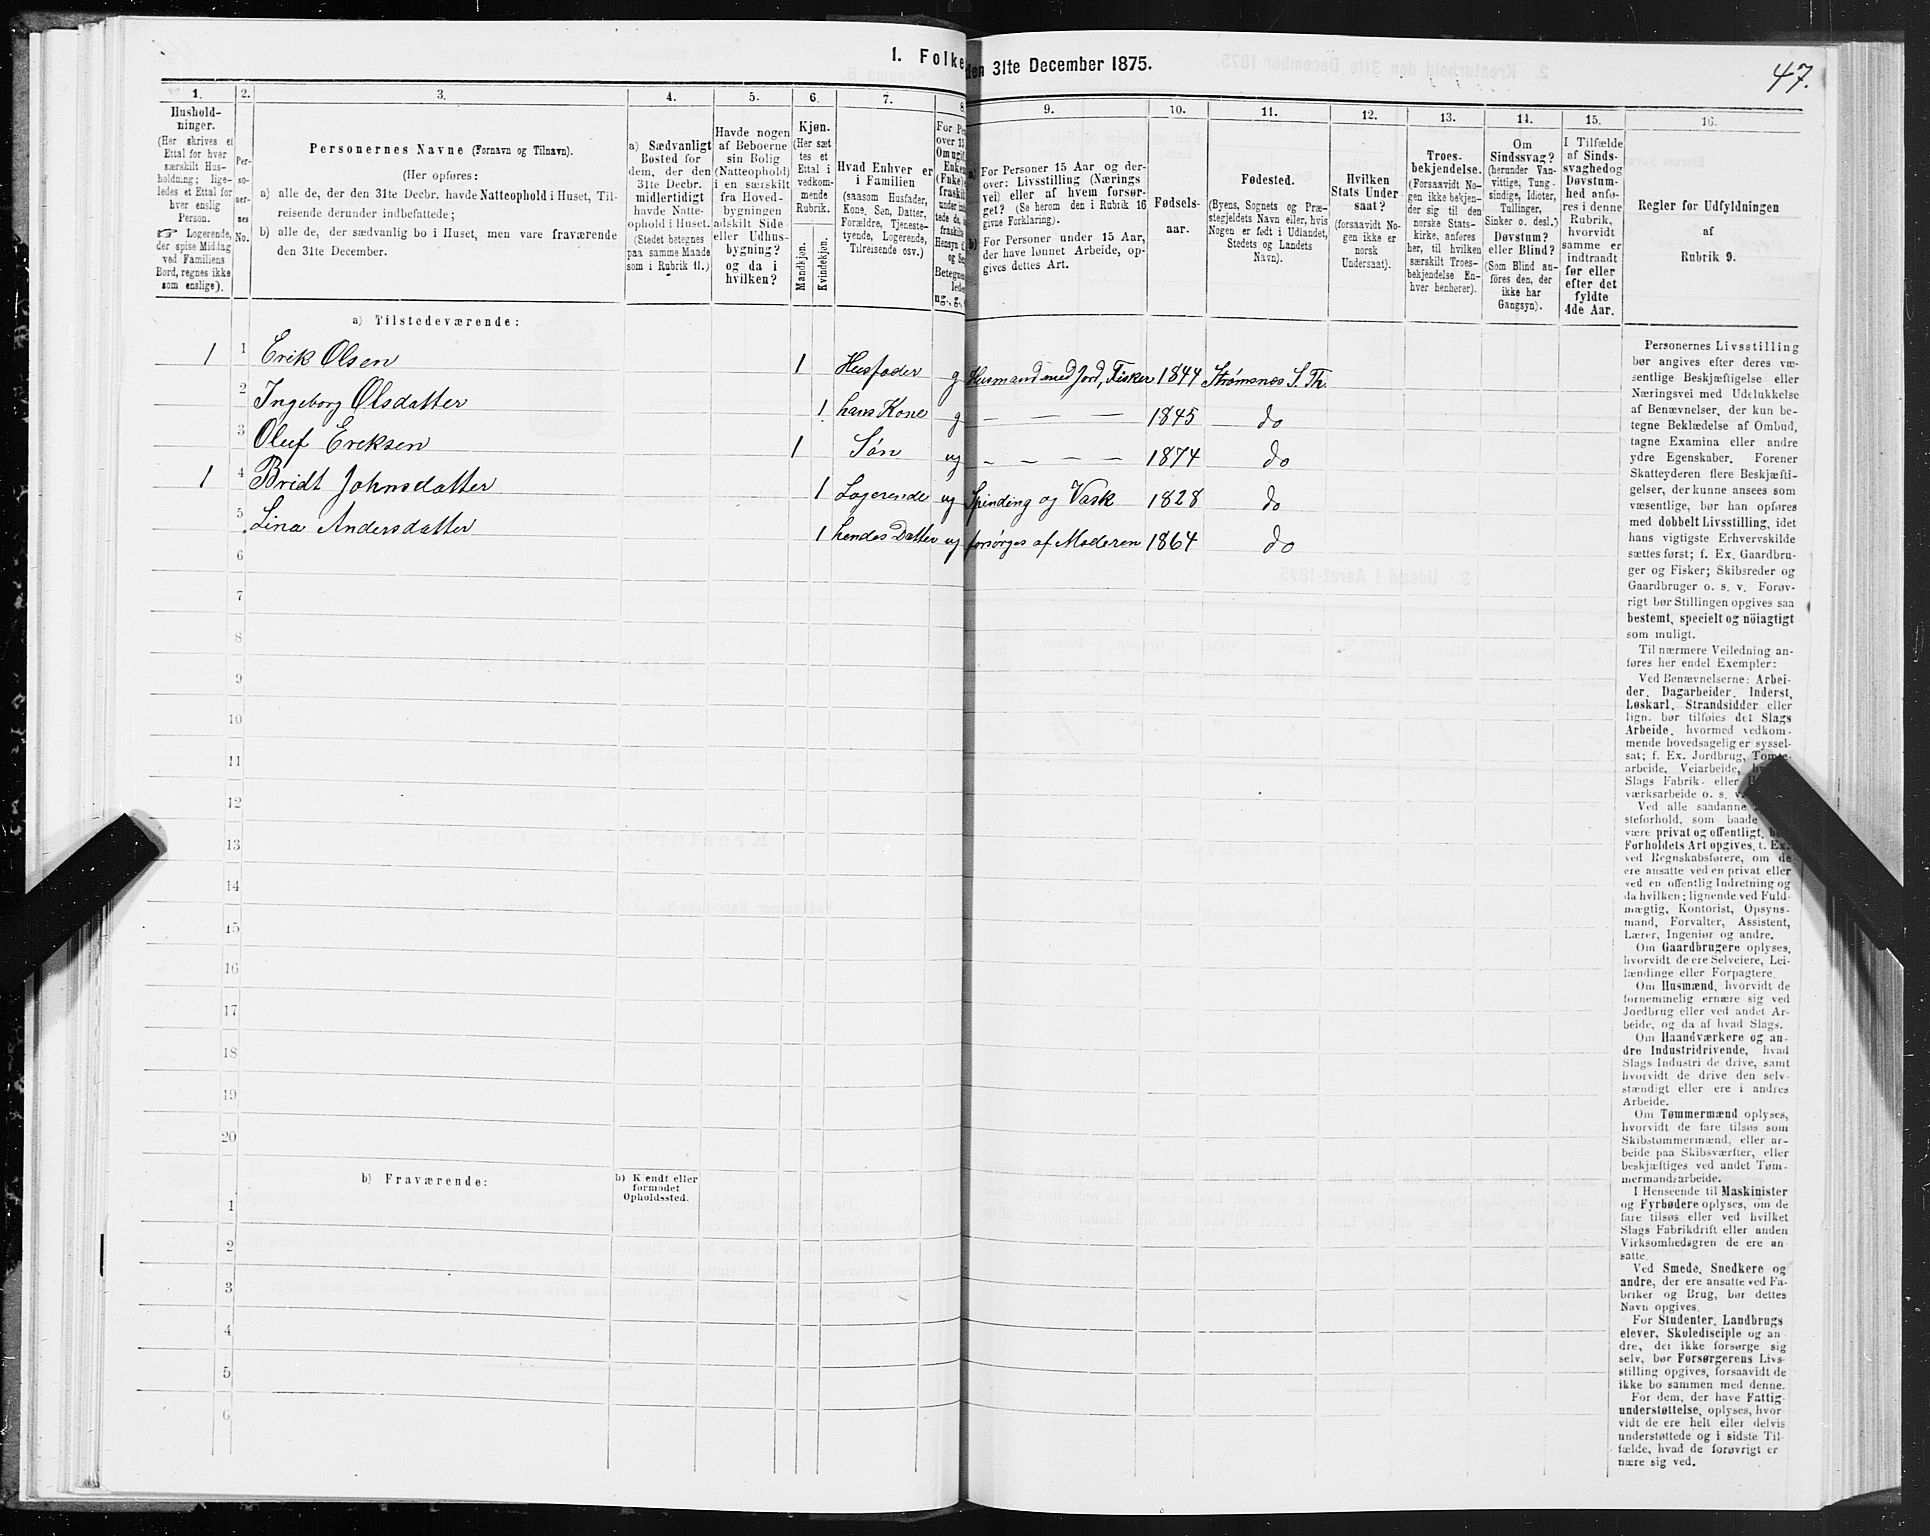 1. Folke den 31te December 1875.
47.
1. 2. 3. 4. 5. 6. 7. 8. 9. 10. 11. 12. 13. 14. 15. 16.
Hushold-
ninger.
(Her skrives et
Ettal for hver
særskilt Hus-
holdning; lige-
ledes et Ettal for
hver enslig
Person.
☞ Logerende,
der spise Middag
ved Familiens
Bord, regnes ikke
som enslige).
Per-
so-
ner-
nes
No.
Personernes Navne (Fornavn og Tilnavn).
(Her opføres:
a) alle de, der den 31te Decbr. havde Natteophold i Huset, Til-
reisende derunder indbefattede;
b) alle de, der sædvanlig bo i Huset, men vare fraværende
den 31te December.
a) Sædvanligt
Bosted for
dem, der den
31te Decbr.
midlertidigt
havde Natte-
ophold i Huset.
(Stedet betegnes
paa samme Maade
som i Rubrik 11.)
Havde nogen
af Beboerne
sin Bolig
(Natteophold)
i en særskilt
fra Hoved-
bygningen
adskilt Side-
eller Udhus-
bygning?
og da i
hvilken?
Kjøn.
(Her sæt
tes et
Ettal i
vedkom-
mende
Rubrik.
Mandkjøn.
Kvindekjøn.
Hvad Enhver er
i Familien
(saasom Husfader,
Kone, Søn, Datter,
Forældre, Tjeneste-
tyende, Logerende,
Tilreisende osv.)
For Pe
over 15
Om ugif
Enke
(Fuke)
fraskil
under in
tede de,
fraskilt
Hensyn t
og Se
Betegne
lede
ug., g.,
a) For Personer 15 Aar og der-
over: Livsstilling (Nærings
vei) eller af hvem forsør-
get? (Se herom den i Rubrik 16
givne Forklaring).
b) For Personer under 15 Aar,
der have lønnet Arbeide, op-
gives dettes Art.
Fødsels-
aar.
Fødested.
(Byens, Sognets og Præ-
stegjeldets Navn eller, hvis
Nogen er født i Udlandet,
Stedets og Landets
Navn).
Hvilken
Stats Under
saat?
(forsaavidt No-
gen ikke er
norsk
Undersaat).
Troes-
bekjendelse.
(Forsaavidt No-
gen ikke bekjen-
der sig til den
norske Stats-
kirke, anføres
her, til hvilken
særskilt Troes-
bekjendelse En-
hver henhører).
Om
Sindssvag?
(herunder Van-
vittige, Tung-
sindige, Idioter,
Tullinger,
Sinker o. desl.)
Døvstum?
eller Blind?
(Som Blind an-
føres den, der
ikke har
Gangsyn).
I Tilfælde
af Sinds-
svaghed og
Døvstum-
hed anfø-
res i denne
Rubrik,
hvorvidt
samme er
indtraadt
før eller
efter det
fyldte
4de Aar.
Regler for Udfyldningen
af
Rubrik 9.
a) Tilstedeværende:
1 1 Erik Olsen 1 Husfader g Husmand med Jord, Fisker 1844 Strømsnes S. Th.
2 Ingeborg Olsdatter 1 hans Kone g — — — 1845 do
3 Oluf Ereksen 1 Søn ug — — — — 1874 do
1 4 Bridt Johnsdatter 1 Logerende ug Spinding og Vask 1828 do
5 Lina Andersdatter 1 hendes Datter ug forsørges af Moderen 1864 do
6
7
8
9
10
11
12
13
14
15
16
17
18
19
20
b) Fraværende:
b) Kjendt eller
formodet
Opholdssted.
1
2
3
4
5
6
Personernes Livsstilling
bør angives efter deres væ-
sentlige Beskjæftigelse eller
Næringsvei med Udelukkelse
af Benævnelser, der kun be-
tegne Beklædelse af Ombud,
tagne Examina eller andre
ydre Egenskaber. Forener
Skatteyderen flere Beskjæfti-
gelser, der kunne ansees som
væsentlige, bør han opføres
med dobbelt Livsstilling, idet
hans vigtigste Erhvervskilde
sættes først; f. Ex. Gaardbru-
ger og Fisker; Skibsreder og
Gaardbruger o. s. v. Forøv-
rigt bør Stillingen opgives saa
bestemt, specielt og nøiagtigt
som muligt.
Til nærmere Veiledning an-
føres her endel Exempler:
Ved Benævnelserne: Arbei-
der, Dagarbeider, Inderst,
Løskarl, Strandsidder eller
lign. bør tilføies det Slags
Arbeide, hvormed vedkom-
mende hovedsagelig er syssel-
sat; f. Ex. Jordbrug, Tomte-
arbeide, Veiarbeide,
Slags Fabrik- eller
værksarbeide o. s. v.
Ved alle saadanne
steforhold, som baade
være privat og offentligt,
Forholdets Art opgives, t. Ex.
ved Regnskabsførere, om de
ere ansatte ved en privat eller
ved en offentlig Indretning og
da hvilken; lignende ved Fuld-
mægtig, Kontorist, Opsyns-
mand, Forvalter, Assistent,
Lærer, Ingeniør og andre.
Om Gaardbrugere oplyses,
hvorvidt de ere Selveiere, Lei-
lændinge eller Forpagtere.
Om Husmænd, hvorvidt de
fornemmelig ernære sig ved
Jordbrug eller ved andet Ar-
beide, og da af hvad Slags.
Om Haandværkere og an-
dre Industridrivende, hvad
Slags Industri de drive, samt
hvorvidt de drive den selv-
stændigt eller ere i andres
Arbeide.
Om Tømmermænd oplyses,
hvorvidt de fare tilsøs som
Skibstømmermænd, eller ar-
beide paa Skibsværfter, eller
beskjæftiges ved andet Tøm-
mermandsarbeide.
I Henseende til Maskinister
og Fyrbødere oplyses, om de
fare tilsøs eller ved hvilket
Slags Fabrikdrift eller anden
Virksomhedsgren de ere an-
satte.
Ved Smede, Snedkere og
andre, der ere ansatte ved Fa-
briker og Brug, bør dettes
Navn opgives.
For Studenter, Landbrugs
elever, Skoledisciple og an-
dre, der ikke forsørge sig
selv, bør Forsørgerens Livs-
stilling opgives, forsaavidt de
ikke bo sammen med denne.
For dem, der have Fattig-
understøttelse, oplyses, hvor-
vidt de ere helt eller delvis
understøttede og i sidste Til-
fælde, hvad de forøvrigt er
nære sig ved.